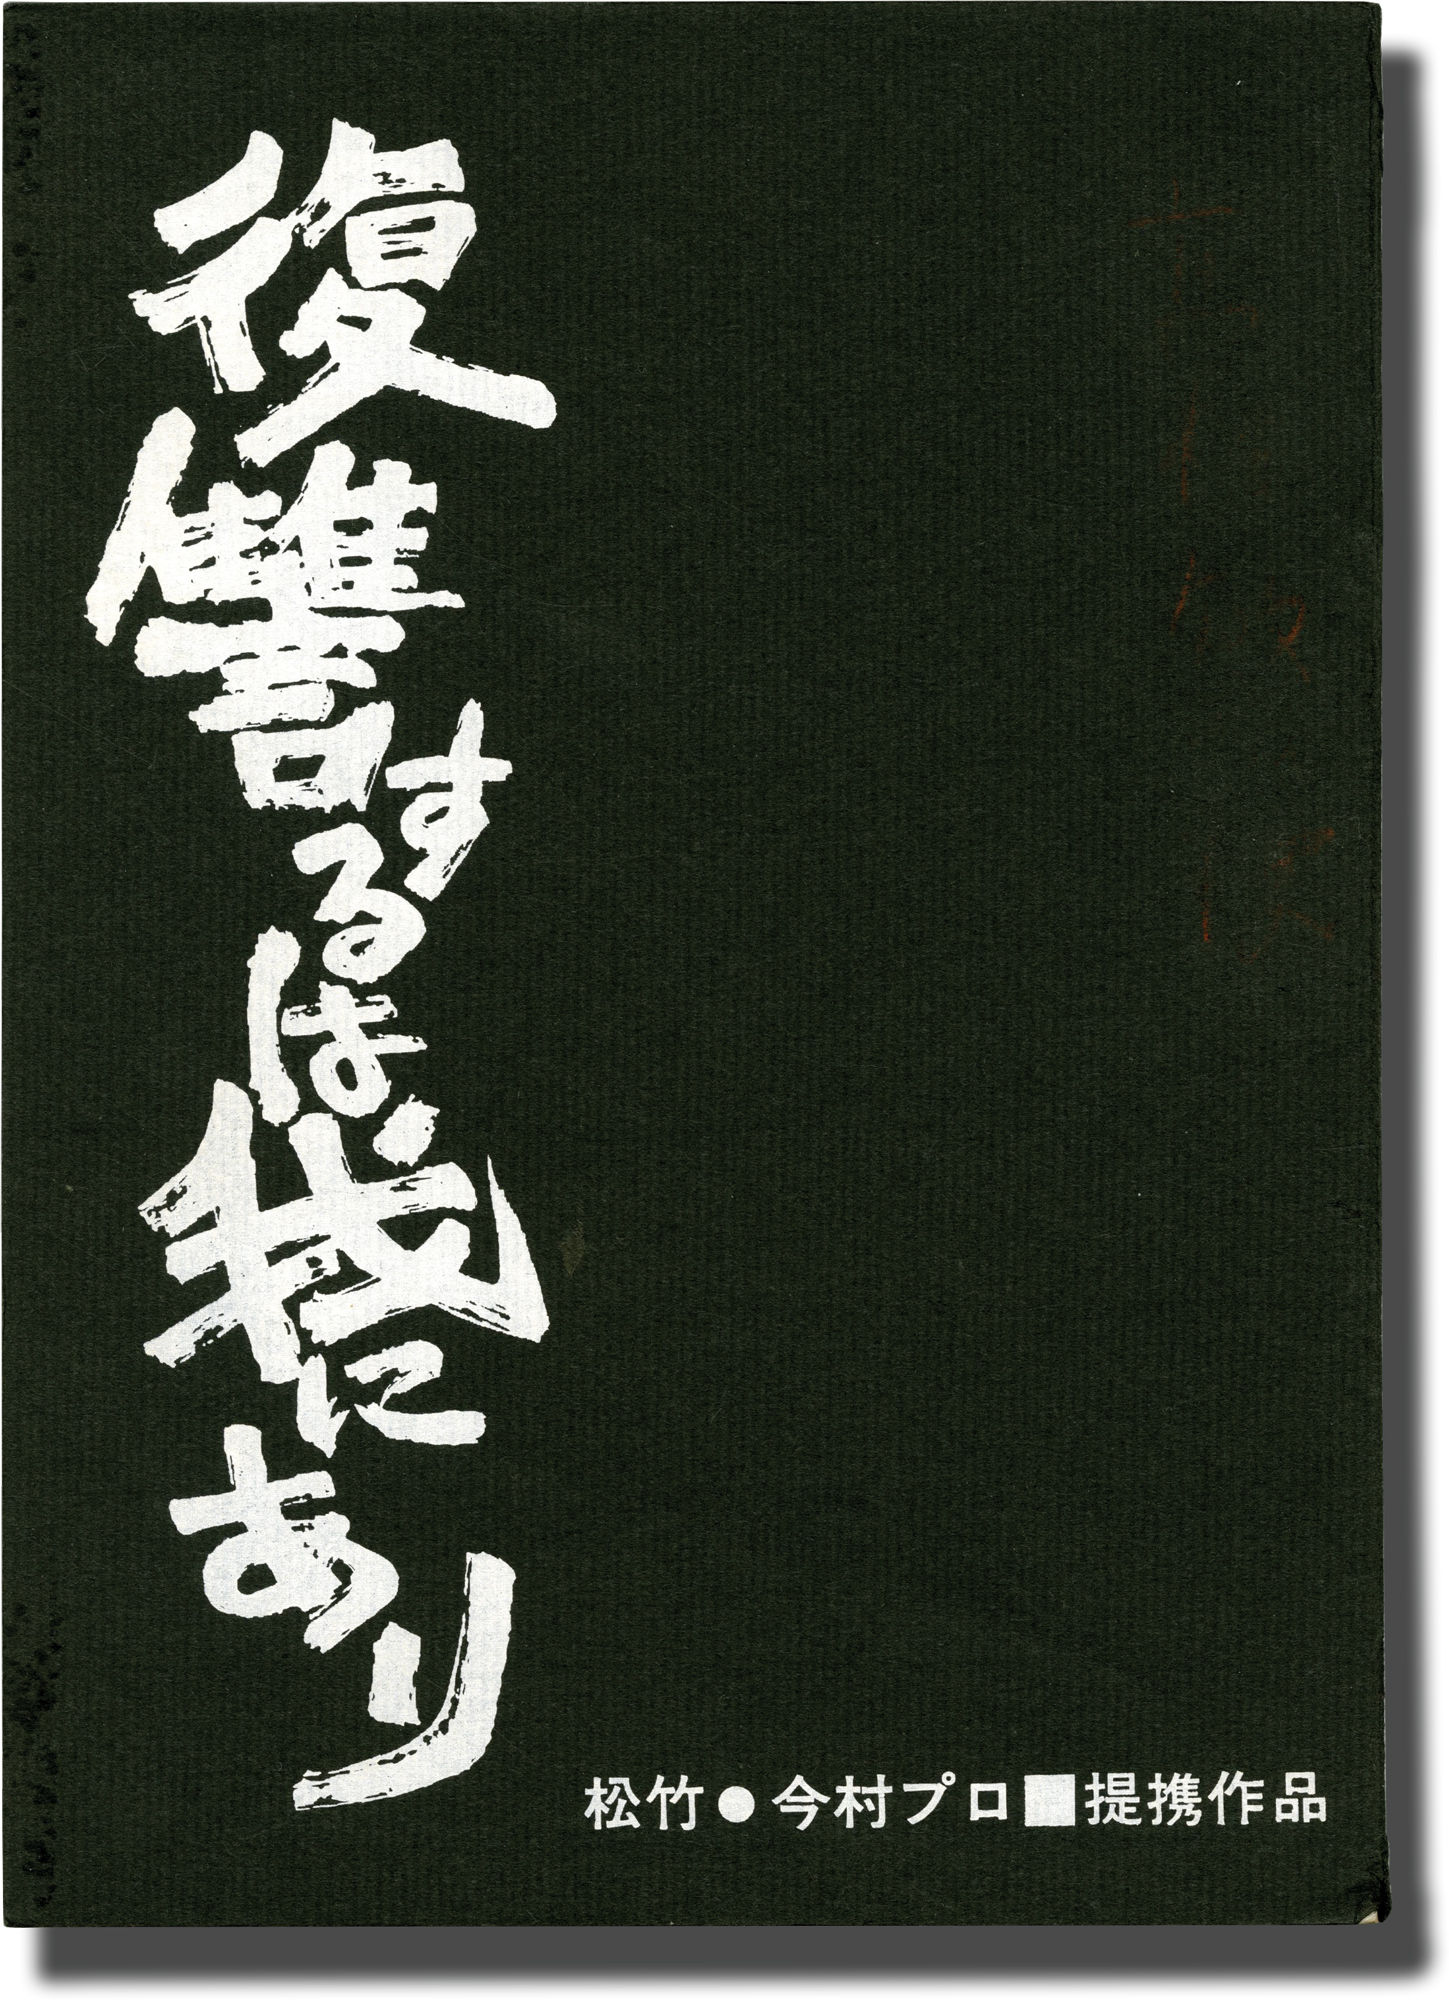 復讐するは我にあり
松竹●今村プロ■提携作品